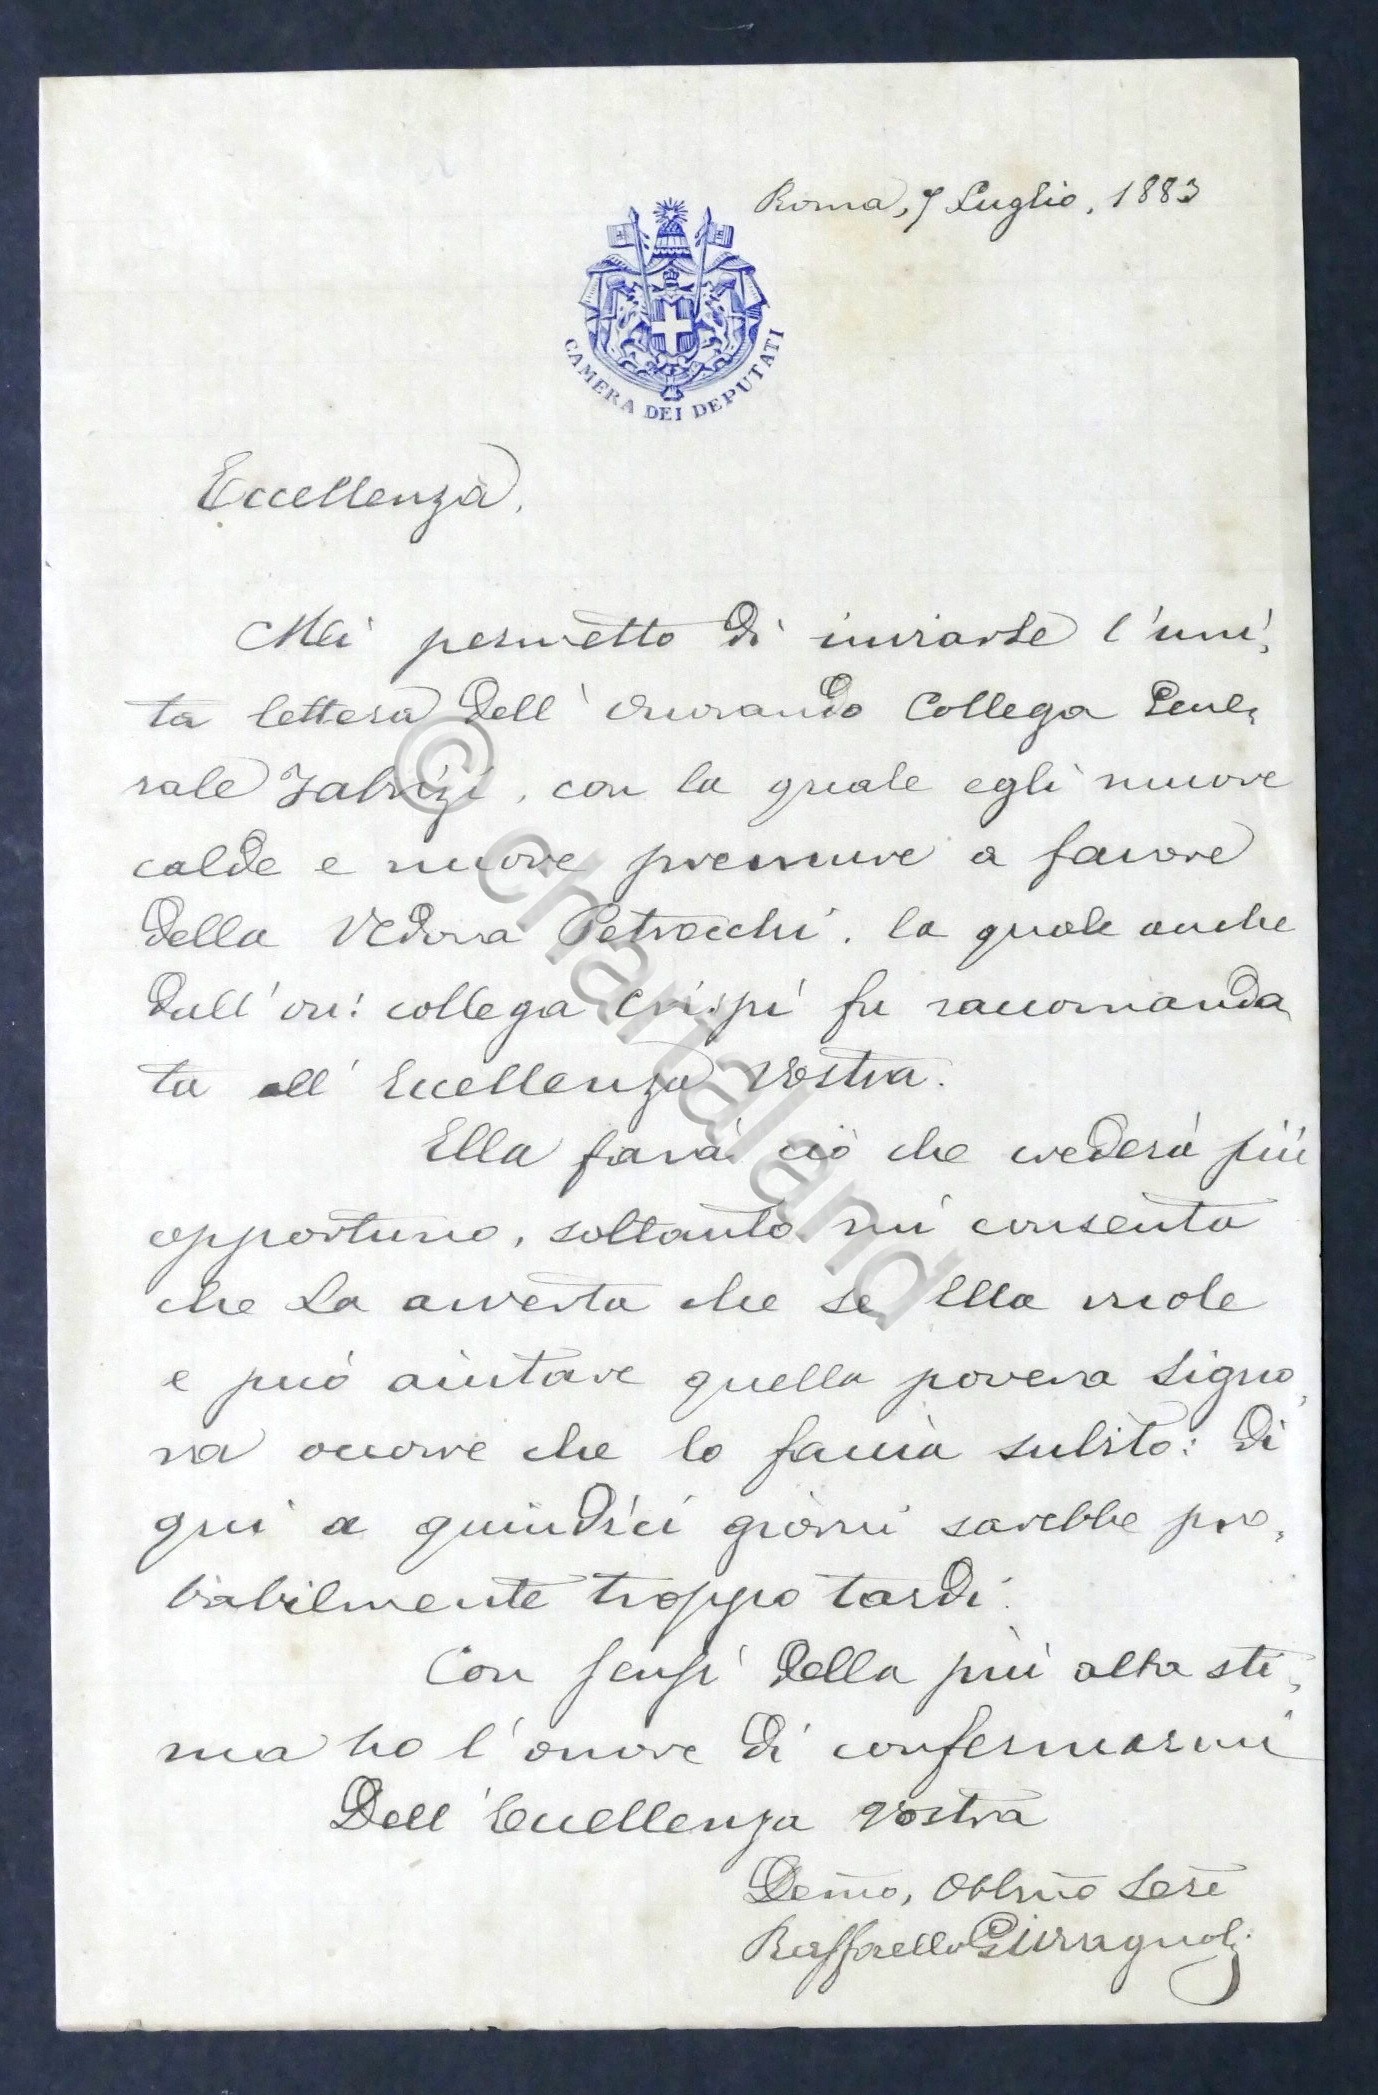 Roma, 7 Luglio, 1883
CAMERA DEI DEPUTATI
Eccellenza,
Mi permetto di inviarLe l'uni,
ta lettera dell'onorando Collega Gene,
rale Fabrizi, con la quale egli muove
calde e nuove premure a favore
della Vedova Petrocchi, la quale anche
dall'on: collega Crispi fu raccomanda,
ta all'Eccellenza Vostra.
Ella farà ciò che crederà più
opportuno, soltanto mi consenta
che La avverta che se Ella vuole
e può aiutare quella povera Signo,
ra occorre che lo faccia subito: di
qui a quindici giorni sarebbe pro,
babilmente troppo tardi.
Con sensi della più alta sti,
ma ho l'onore di confermarmi
Dell'Eccellenza Vostra
Demo, Obblmo Serv
Raffaello Giovagnoli
© chartaland